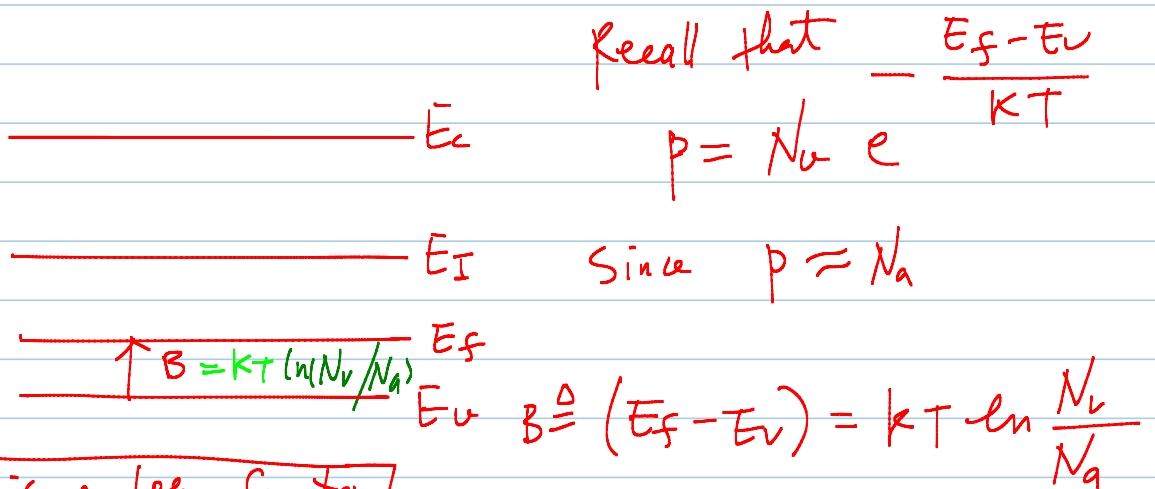 Recall that
p = N_v e^{- \frac{E_f - E_v}{KT}}
E_c
E_I
Since p ≈ N_a
E_f
B = KT ln(N_v/N_a)
E_v
B ≜ (E_f - E_v) = kT ln \frac{N_v}{N_a}